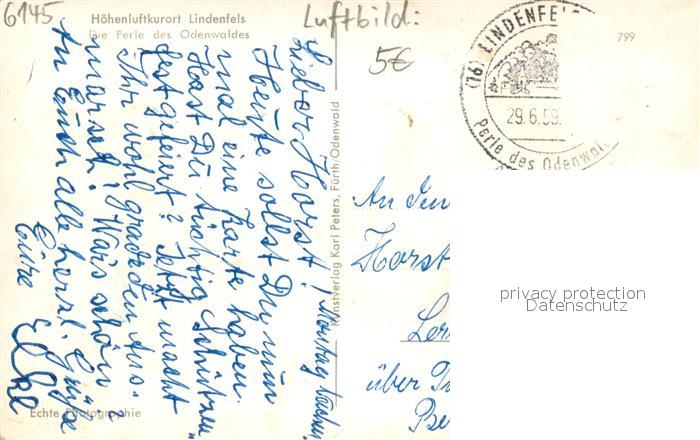 6145
Höhenluftkurort Lindenfels
Die Perle des Odenwaldes
Luftbild:
5€
799
(16) LINDENFELS
29.6.59.
Perle des Odenwaldes
Lieber Horst!
Heute sollst Du nun
mal eine Karte haben.
Hast Du tüchtig Schützen
fest gefeiert? Jetzt macht
Ihr wohl grad den Aus-
marsch! War's schön?
An Euch alle herzl. Grüße
Eure
Elke
Montag
Kunstverlag Karl Peters, Fürth/Odenwald
Echte Photographie
An den
Horst
über
privacy protection
Datenschutz